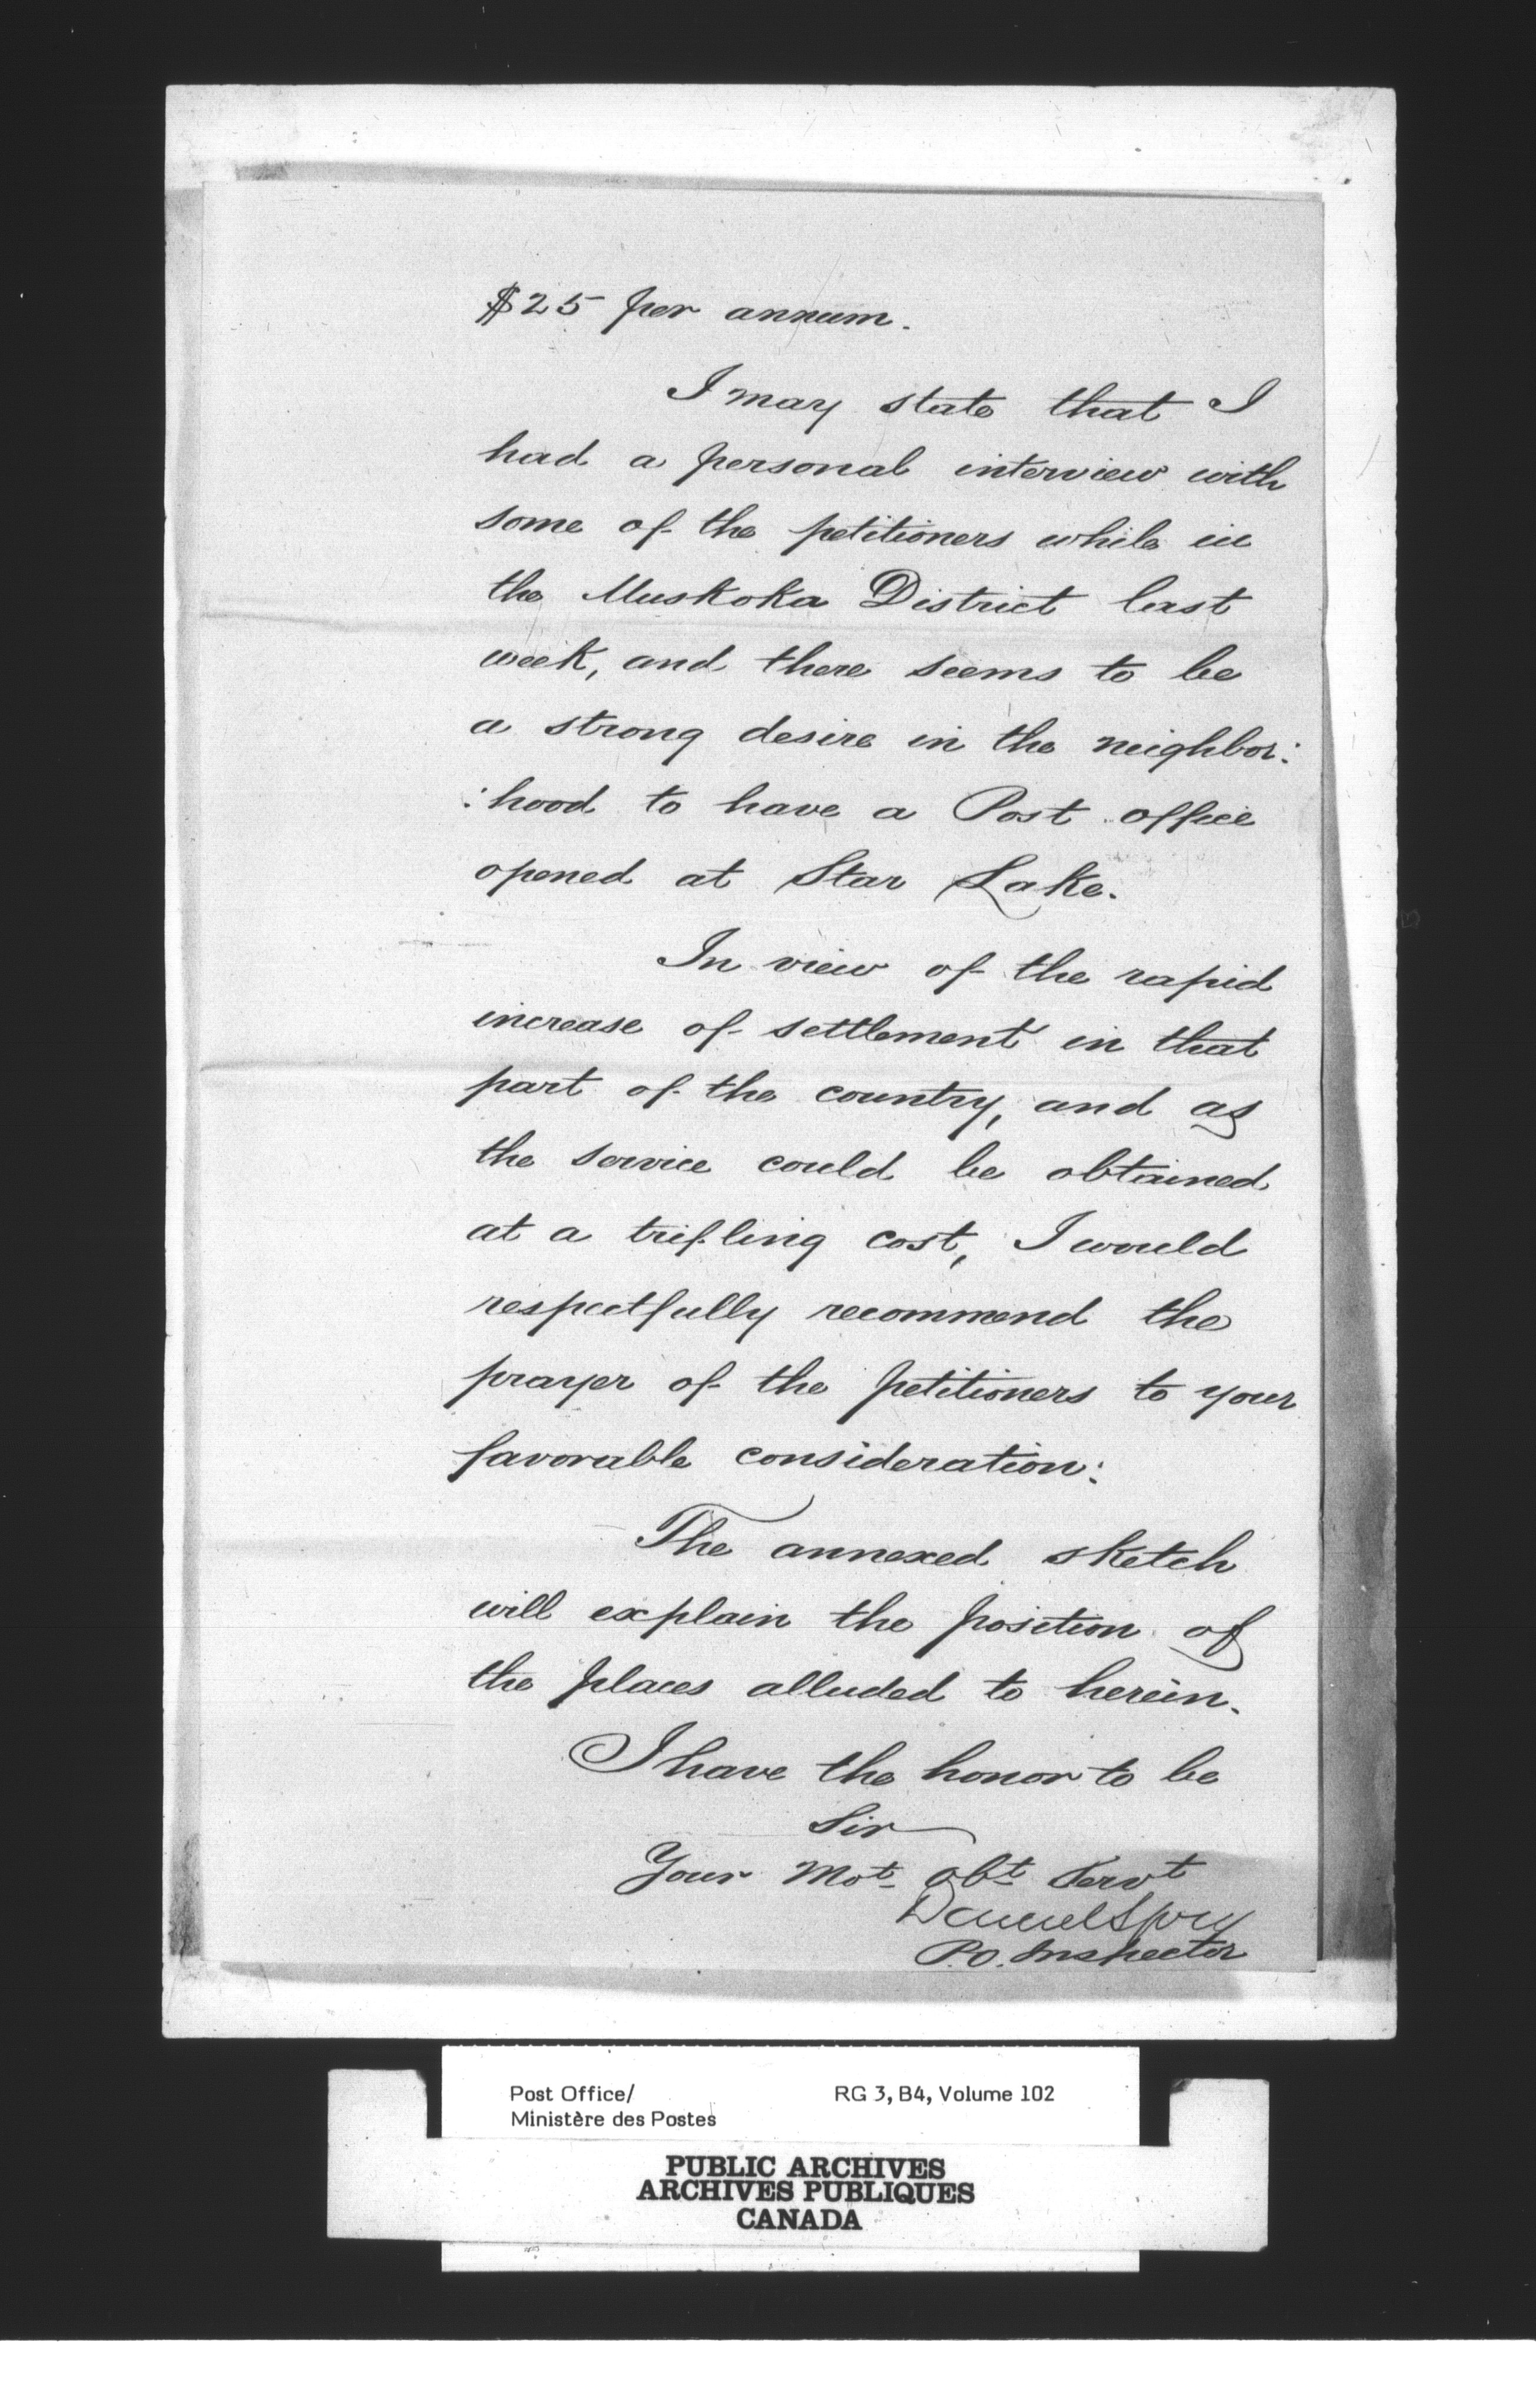 $25 per annum.
I may state that I
had a personal interview with
some of the petitioners while in
the Muskoka District last
week, and there seems to be
a strong desire in the neighbor:
:hood to have a Post office
opened at Star Lake.
In view of the rapid
increase of settlement in that
part of the country, and as
the service could be obtained
at a trifling cost, I would
respectfully recommend the
prayer of the petitioners to your
favorable consideration:
The annexed sketch
will explain the position of
the places alluded to herein.
I have the honor to be
Sir
Your Mot. obt Servt
Daniel Spry
P.O. Inspector
Post Office/ RG 3, B4, Volume 102
Ministère des Postes
PUBLIC ARCHIVES
ARCHIVES PUBLIQUES
CANADA